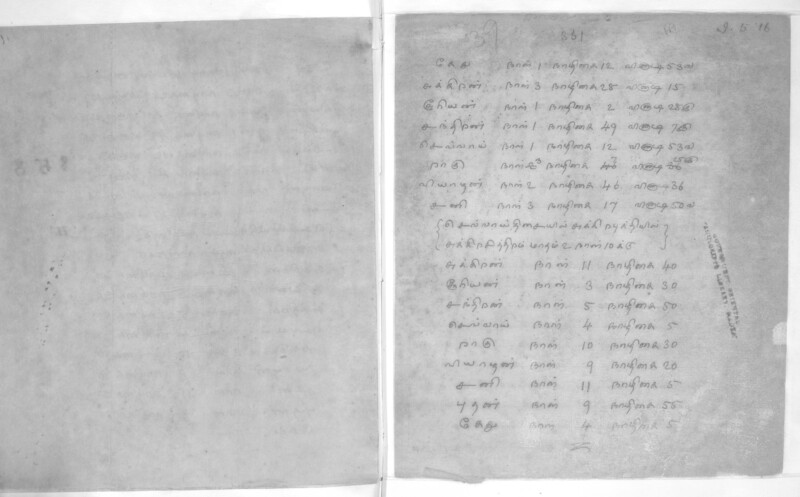 351
கேது நாள் 1 நாழிகை 12 விநாடி 53
சுக்கிரன் நாள் 3 நாழிகை 28 விநாடி 15
சூரியன் நாள் 1 நாழிகை 2 விநாடி
சந்திரன் நாள் 1 நாழிகை 49 விநாடி
செவ்வாய் நாள் 1 நாழிகை 12 விநாடி 53
ராகு நாள் 3 நாழிகை விநாடி
வியாழன் நாள் 2 நாழிகை 46 விநாடி 36
சனி நாள் 3 நாழிகை 17 விநாடி 50
{ செவ்வாய் திசையில் சுக்கி }
{ சுக்கிர மாதம் 2 நாள் 10 க்கு }
சுக்கிரன் நாள் 11 நாழிகை 40
சூரியன் நாள் 3 நாழிகை 30
சந்திரன் நாள் 5 நாழிகை 50
செவ்வாய் நாள் 4 நாழிகை 5
ராகு நாள் 10 நாழிகை 30
வியாழன் நாள் 9 நாழிகை 20
சனி நாள் 11 நாழிகை 5
புதன் நாள் 9 நாழிகை 55
கேது நாள் 4 நாழிகை 5